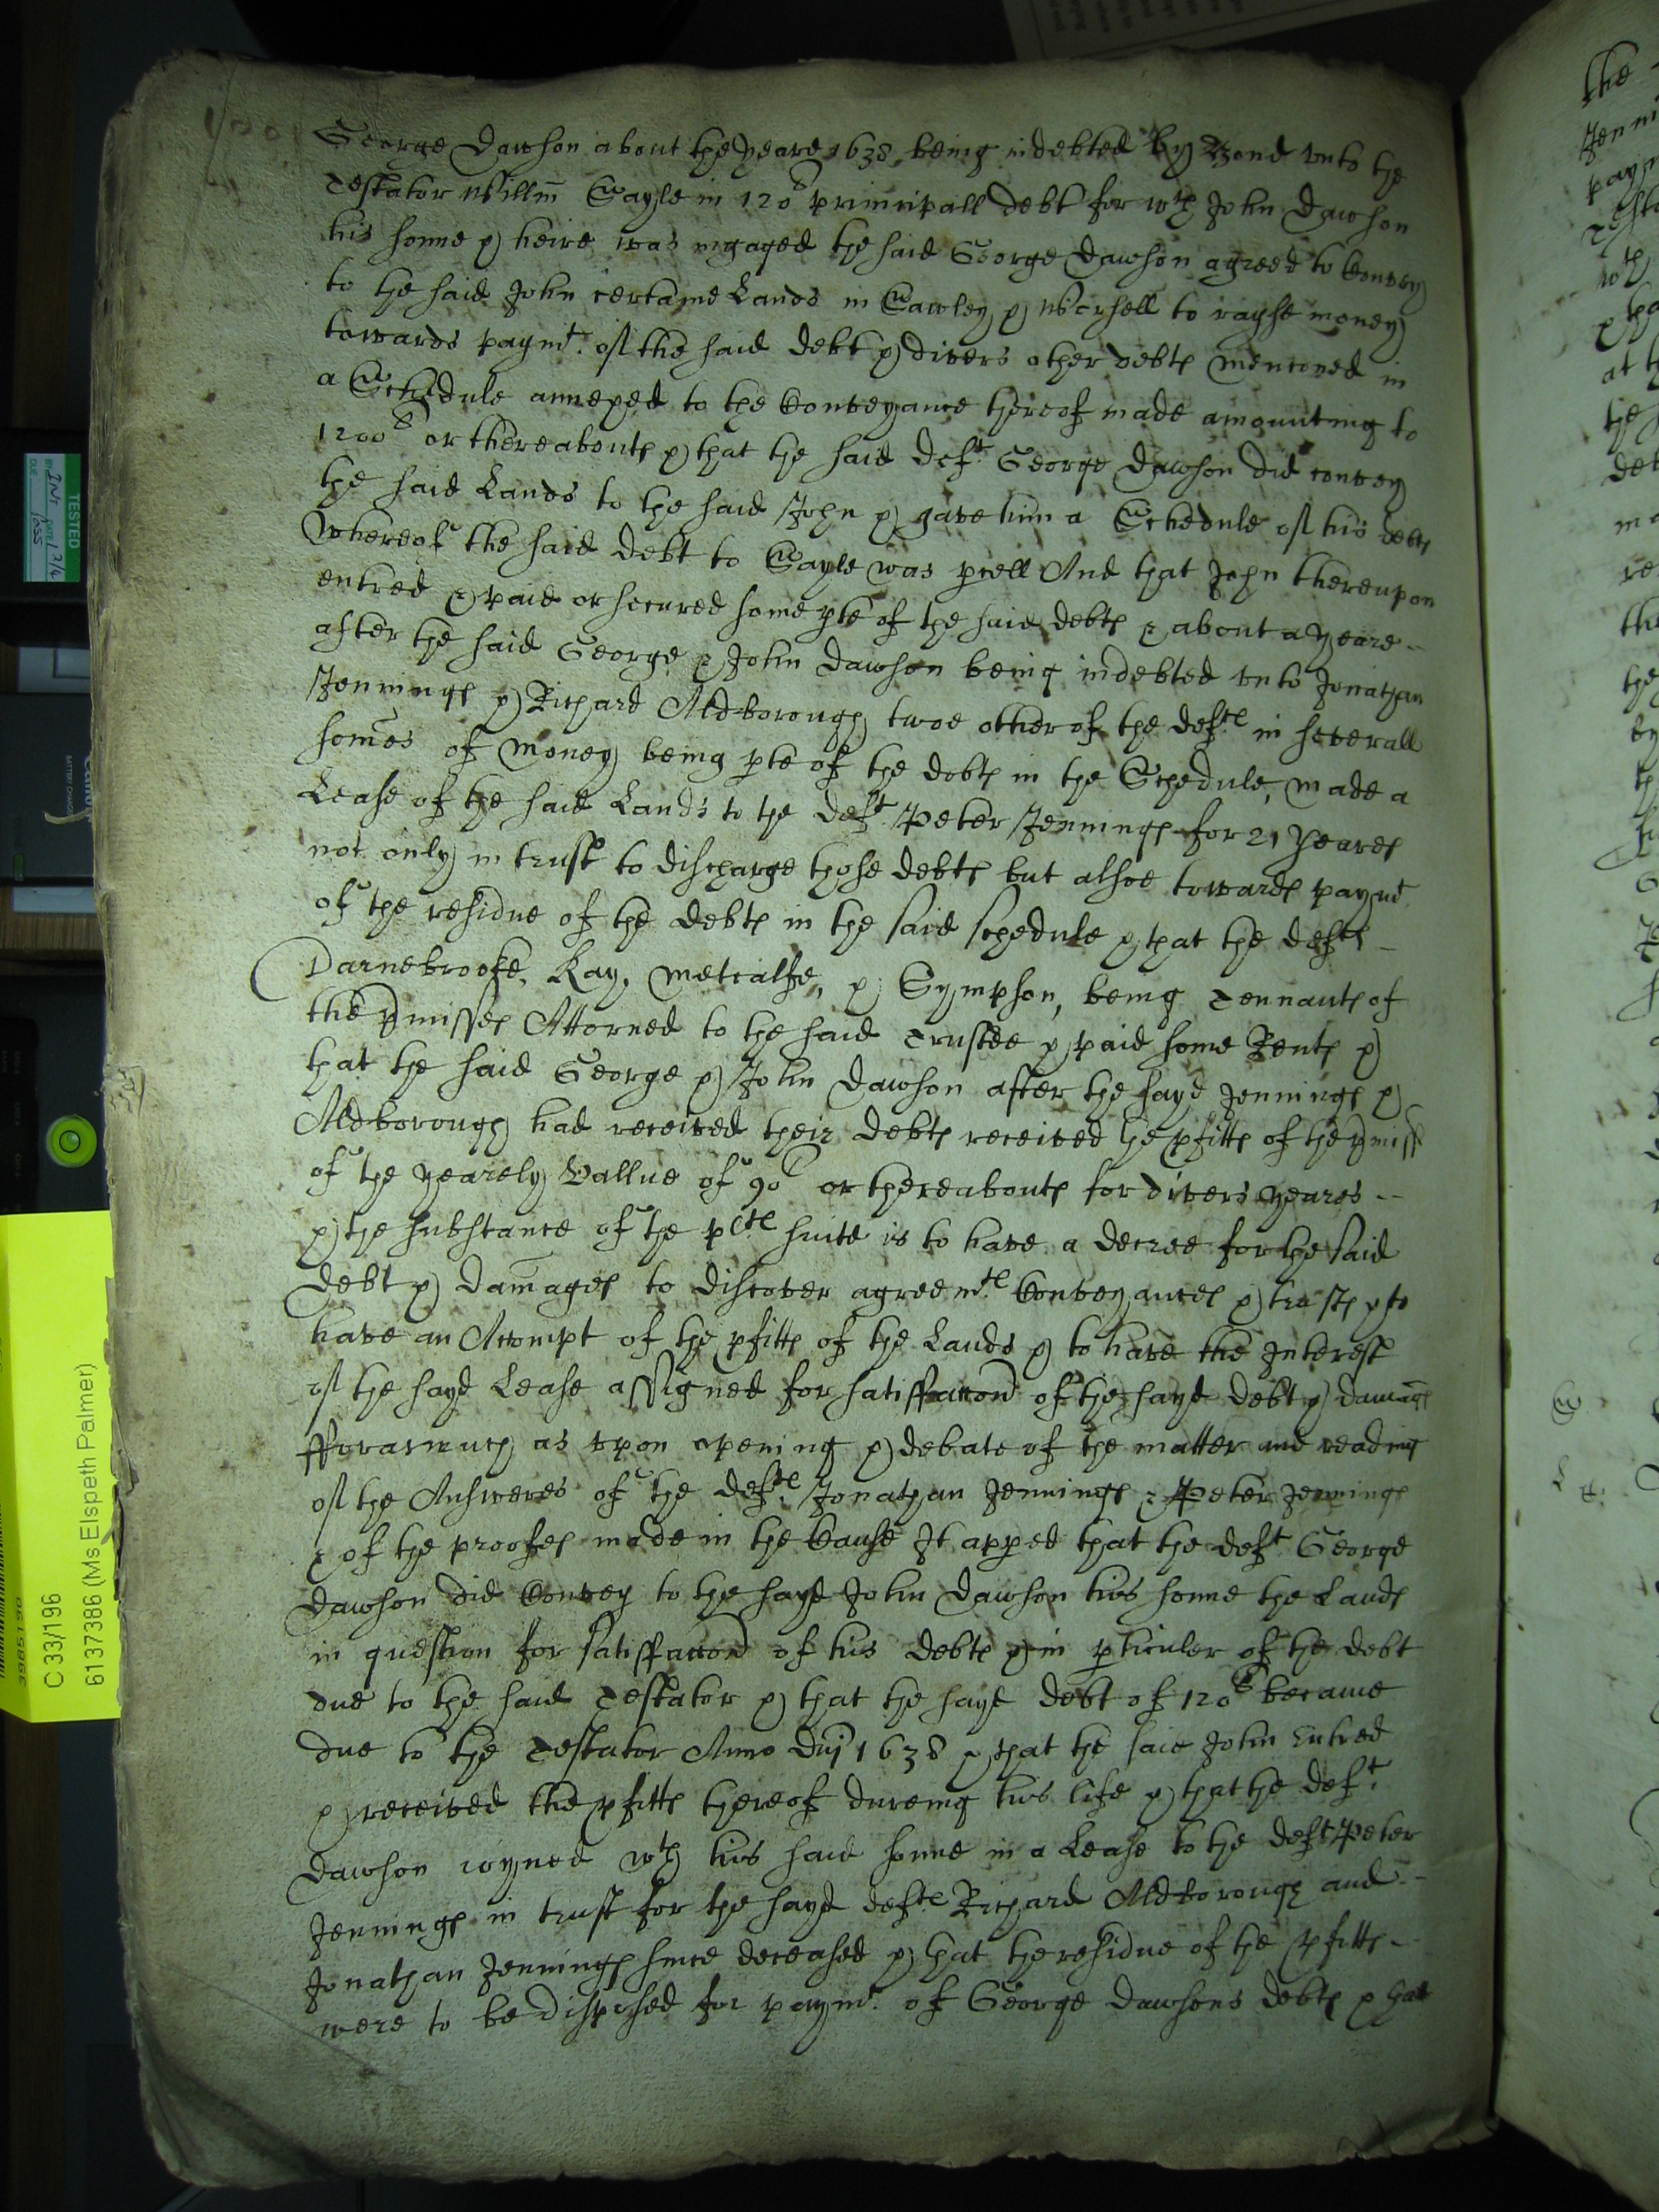 George Dawson about the yeare 1638 being indebted by Bond vnto the
Testator Willm Sayle in 120l principall debt for wch John Dawson
his sonne & heire was ingaged the said George Dawson agreed to Convey
to the said John certaine Lands in Sawley & Worsell to rayse money
towards paymt. of the said debt & divers other debts menconed in
a Schedule annexed to the Conveyance thereof made amounting to
1200l or thereabouts & that the said Deft. George Dawson did convey
the said Lands to the said John & gave him a Schedule of his debts
Whereof the said debt to Sayle was pcell And that John thereupon
entred & paid or secured some pte of the said debts & about a yeare --
after the said George & John Dawson being indebted vnto Jonathan
Jennings & Richard Aldborough twoe other of the defts. in severall
somes of money being pte of the debts in the Schedule, made a
Lease of the said Lands to the deft. Peter Jennings for 21 yeares
not only in trust to discharge those debts but alsoe towards paymt
of the residue of the debts in the said schedule & that the defts -
Darnebrooke, Kay, Metcalfe, & Sympson, being Tennants of
the pmisses Attorned to the said Trustee & paid some Rents &
that the said George & John Dawson after the sayd Jennings &
Aldborough had received their debts received the pfitts of the pmiss
of the yearely Vallue of 90l or thereabouts for divers yeares --
& the substance of the plts. suite is to have a decree for the said
debt & damages to discover agreemts. Conveyances & trusts & to
have an Accompt of the pfitts of the Lands & to have the Interest
of the sayd Lease assigned for satisfaccon of the sayd debt & damages
fforasmuch as vpon opening & debate of the matter and reading
of the Answeres of the defts. Jonathan Jennings & Peter Jennings
& of the proofes made in the Cause It apped that the deft George
Dawson did Convey to the sayd John Dawson his sonne the Lands
in question for satisfaccon of his debts & in pticuler of the debt
due to the said Testator & that the sayd debt of 120l became
due to the Testator Anno Dni 1638 & that the said John Entred
& received the pfitts thereof dureing his life & that the deft.
Dawson ioyned wth his said sonne in a Lease to the deft Peter
Jennings in trust for the sayd defts Richard Aldborough and --
Jonathan Jennings since deceased & that the residue of the pfitts -
were to be disposed for paymt. of George Dawsons debts & that
TESTED
C 33/196
6137386 (Ms Elspeth Palmer)